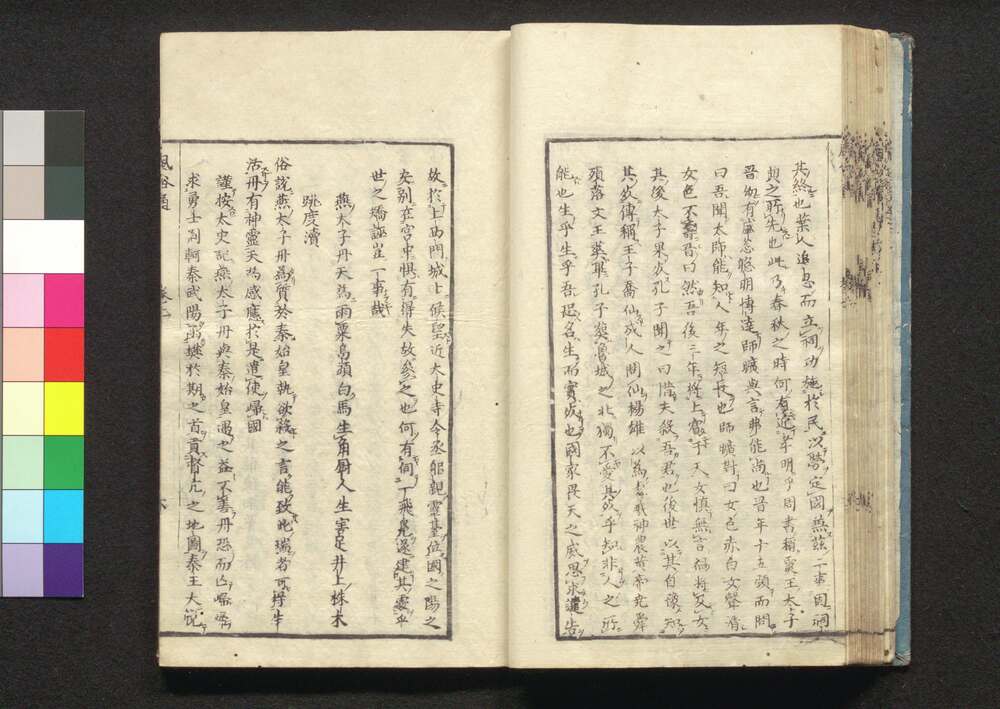 其終也葉人追思而立祠功施於民以勞定國兼茲二事因祠
典之所先也此乃春秋之時何有近孝明乎周書稱靈王太子
晉幼有盛德聰明博達師曠與言弗能尚也晉年十五顧而問
曰吾聞太師能知人年之短長也師曠對曰女色赤白女聲清
女色不壽晉曰然吾後三年將上賓于天女慎無言禍將及女
其後太子果死孔子聞之曰惜夫殺吾君也後世以其自豫知
其死傳稱王子喬仙或人問仙楊雄以為宓戲神農黃帝堯舜
殂落文王葬畢孔子葬魯城之北獨不愛其死乎知非人之所
能也生乎生乎吾恐名生而實死也國家畏天之威思求譴告
故於上西門城上候望近太史寺令丞躬親靈臺位國之陽之
夾別在宮中懼有得失故參之也何有伺一飛鳧遂建其處乎
世之矯誣豈一事哉
燕太子丹天為雨粟烏頭白馬生角廚人生害足井上株木
跳度瀆
俗說燕太子丹為質於秦始皇執欲殺之言能致此瑞者可得生
活丹有神靈天為感應於是遣使歸國
謹按太史記燕太子丹與秦始皇遇之益不善丹恐而亡歸歸
求勇士荊軻秦武陽函樊於期之首貢督亢之地圖秦王大悅
風俗通 卷二 六